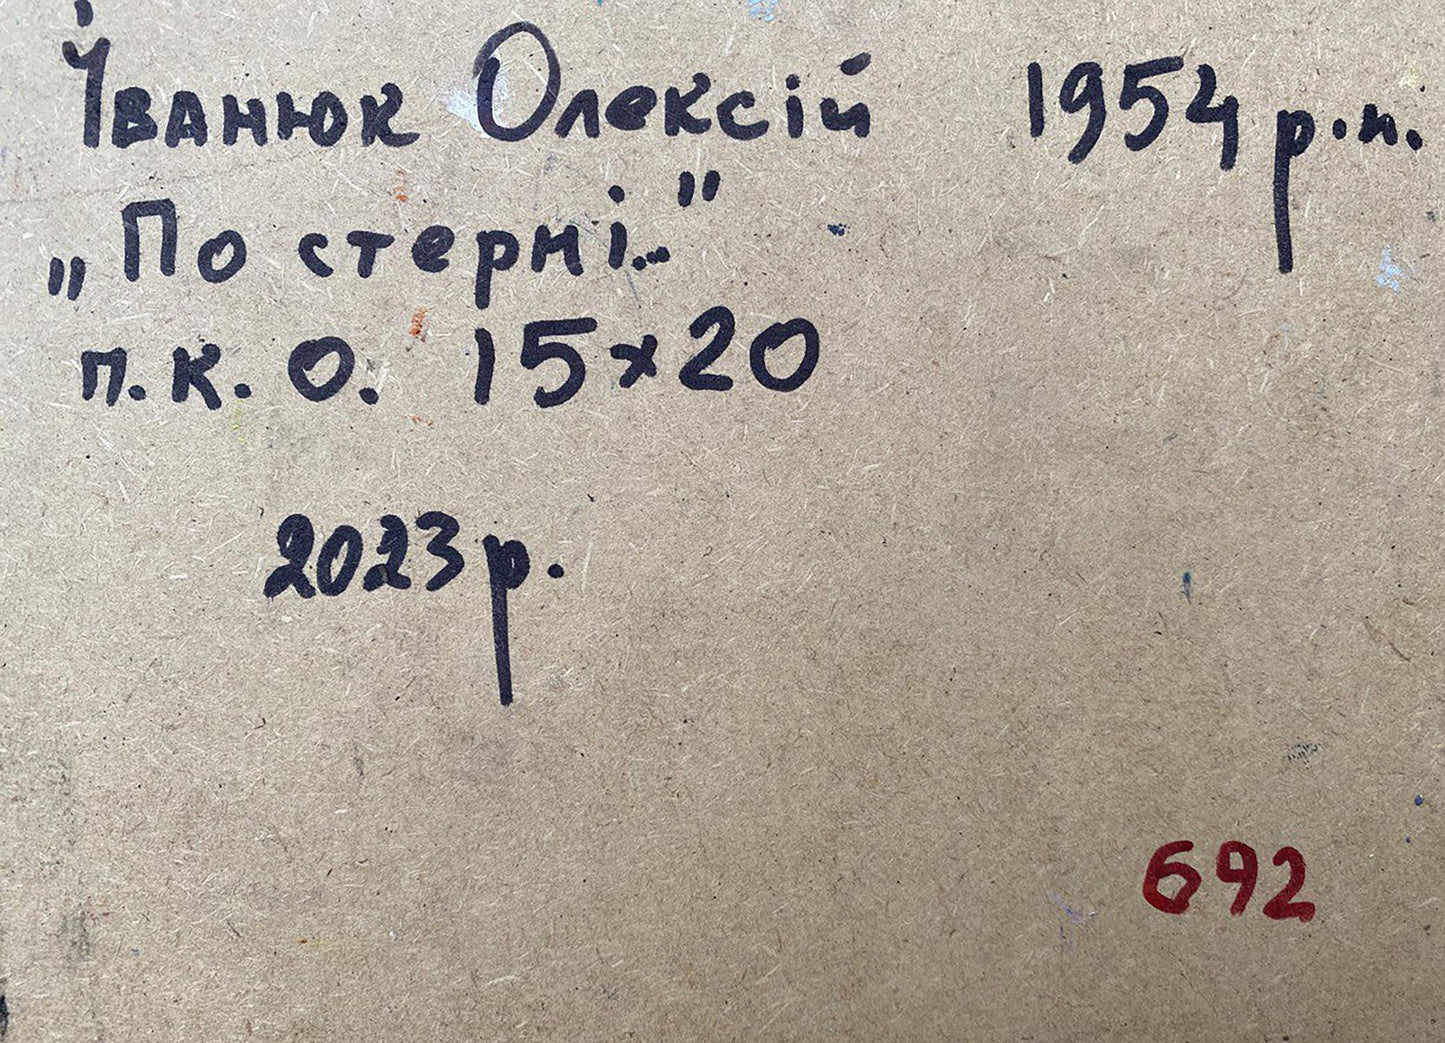 Іванюк Олексій 1954 р.н.
„По стерні..."
п.к. О. 15х20
2023 р.
692